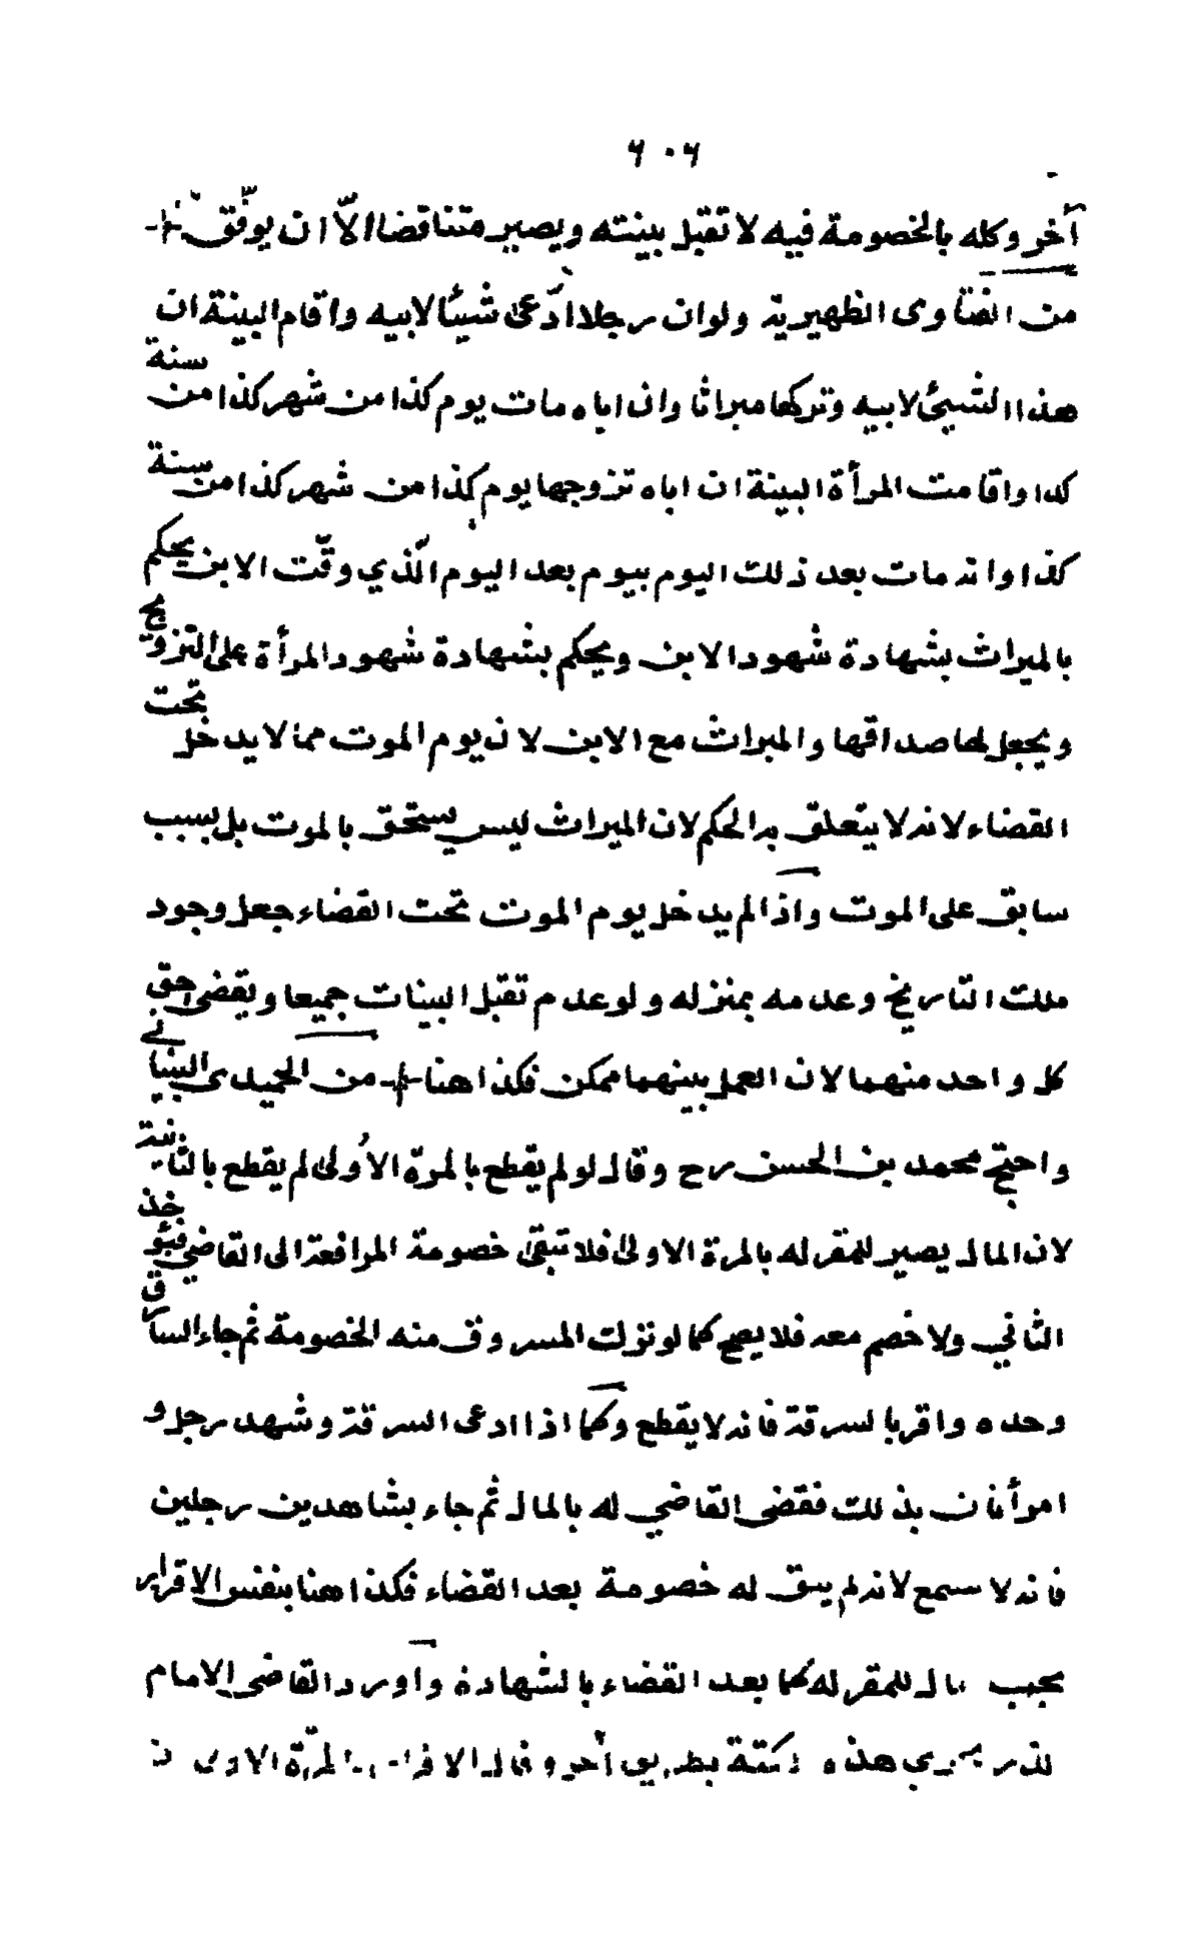 ٦٠٦
آخر وكله بالخصومة فيه لا تقبل بينته ويصير متناقضا الّا ان يوفّق
من الفتاوى الظهيرية ولو ان رجلا ادّعى شيئا لابيه واقام البينة ان
هذا الشيئ لابيه وتركها ميراثا وان اباه مات يوم كذا من شهر كذا من سنة
كدا واقامت المرأة البينة ان اباه تزوجها يوم كذا من شهر كذا من سنة
كذا وانه مات بعد ذلك اليوم بيوم بعد اليوم الّذي وقّت الابن يحكم
بالميراث بشهادة شهود الابن ويحكم بشهادة شهود المرأة على التزوج
ويجعل لها صداقها والميراث مع الابن لان يوم الموت مما لا يدخل تحت
القضاء لانه لا يتعلق به الحكم لان الميراث ليس يستحق بالموت بل بسبب
سابق على الموت واذا لم يدخل يوم الموت تحت القضاء جعل وجود
ملك التاريخ وعدمه بمنزله ولو عدم تقبل البينات جميعا ويقضى حق
كل واحد منهما لان العمل بينهما ممكن فكذا هنا من الحميدى البنيانى
واحتج محمد بن الحسن رح وقال لو لم يقطع بالمرّة الأولى لم يقطع بالثانية
لان المال يصير للمقر له بالمرة الاولى فلا تبقى خصومة المرافعة الى القاضي فيؤخذ
الثاني ولا خصم معه فلا يصح كما لو نزلت المسروق منه الخصومة ثم جاء السارق
وحده واقر بالسرقة فانه لا يقطع وكما اذا ادعى السرقة وشهد رجل و
امرأتان بذلك فقضى القاضي له بالمال ثم جاء بشاهدين رجلين
فانه لا سمع لانه لم يبق له خصومة بعد القضاء فكذا هنا بنفس الاقرار
يجب مال للمقر له كما بعد القضاء بالشهادة واورد القاضى الامام
هذه بطريق آخر وقال الا المرّة الاولى